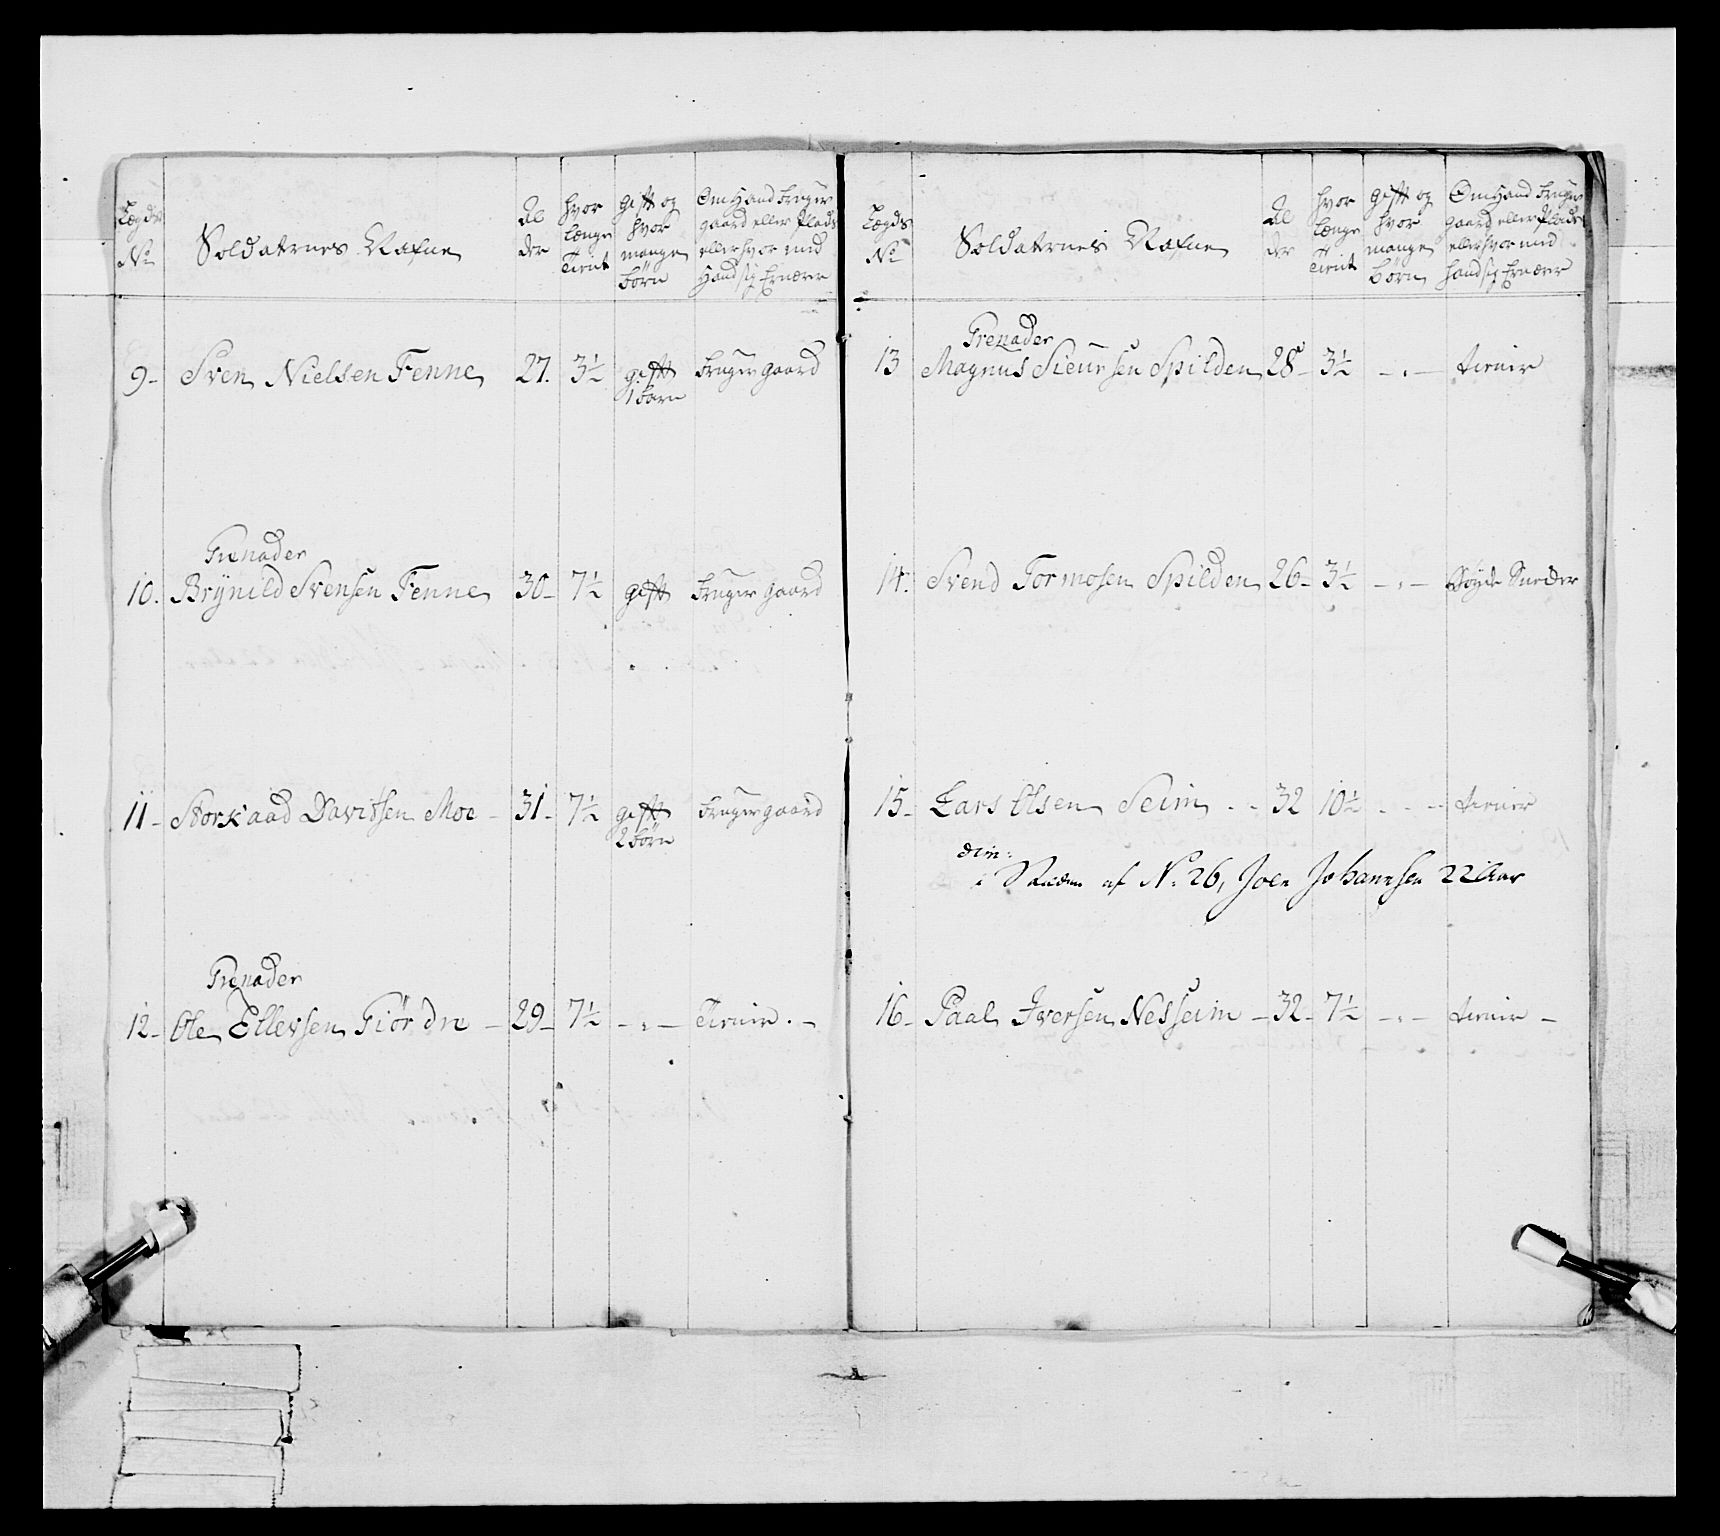 Lægds No
Soldaternes Nafne
Al der
hvor længe Tient
gift og hvor mange börn
Om Hand bruger gaard eller Plads eller hvor med Hand sig Ernærer
9- Sven Nielsen Fenne 27. 3½ gift 1 barn bruger gaard
Grenader
10. Brÿnild Svensen Fenne 30- 7½ gift bruger gaard
11- Storkaad Davidsen Moe - 31- 7½ gift 2 börn bruger gaard
Grenader
12- Ole Ellevsen Giördre - 29- 7½ - " - Tienir. -
Lægds No
Soldaternes Nafne
Al der
hvor længe Tient
gift og hvor mange börn
Om Hand bruger gaard eller Plads eller hvor med hand sig Ernærer
Grenader
13 Magnus Siursen Spilden 28- 3½ - " - tienir
14. Svend Tormosen Spilden 26- 3½ - " - Bÿgde Snedder
15- Lars Olsen Seim - - 32 10½ - - - tienir
dim:
i Stæden af No 26, Joen Johannesen 22 Aar
16- Paal Iversen Nesseim - 32- 7½ - " - tienir -